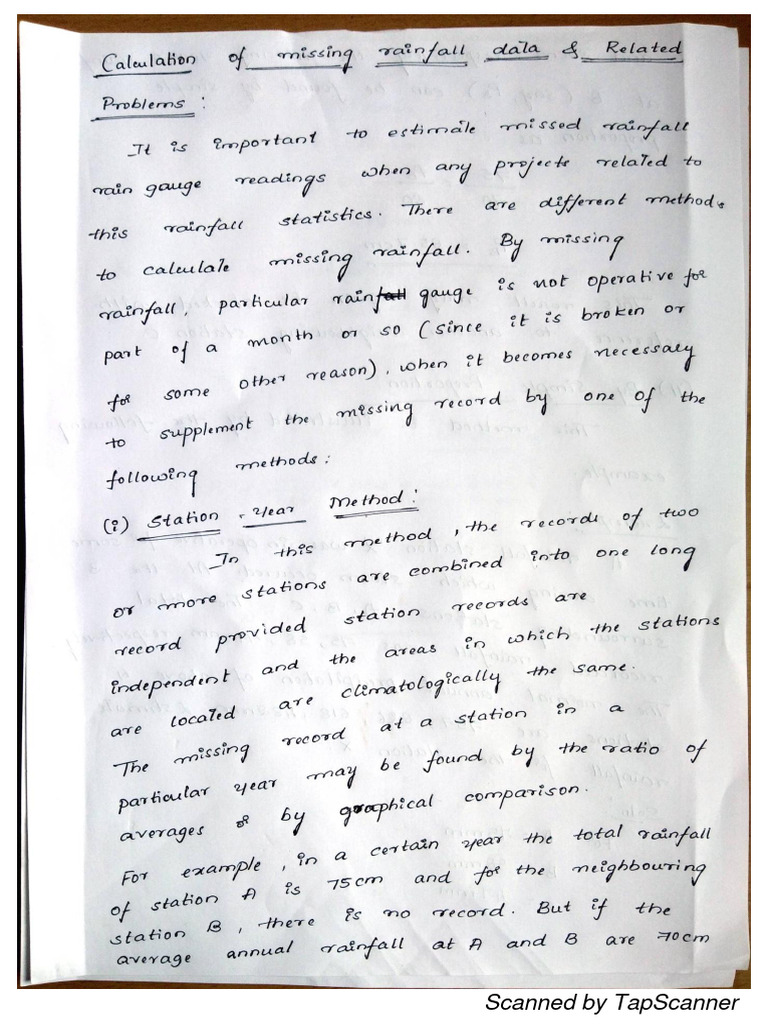 Calculation of missing rainfall data & Related
Problems :
It is important to estimate missed rainfall
rain gauge readings when any projects related to
this rainfall statistics. There are different methods
to calculate missing rainfall. By missing
rainfall, particular rainfall gauge is not operative for
part of a month or so (since it is broken or
for some other reason), when it becomes necessary
to supplement the missing record by one of the
following methods :
(i) Station - Year Method :
In this method, the records of two
or more stations are combined into one long
record provided station records are
independent and the areas in which the stations
are located are climatologically the same.
The missing record at a station in a
particular year may be found by the ratio of
averages or by graphical comparison.
For example, in a certain year the total rainfall
of station A is 75cm and for the neighbouring
station B, there is no record. But if the
average annual rainfall at A and B are 70cm
Scanned by TapScanner